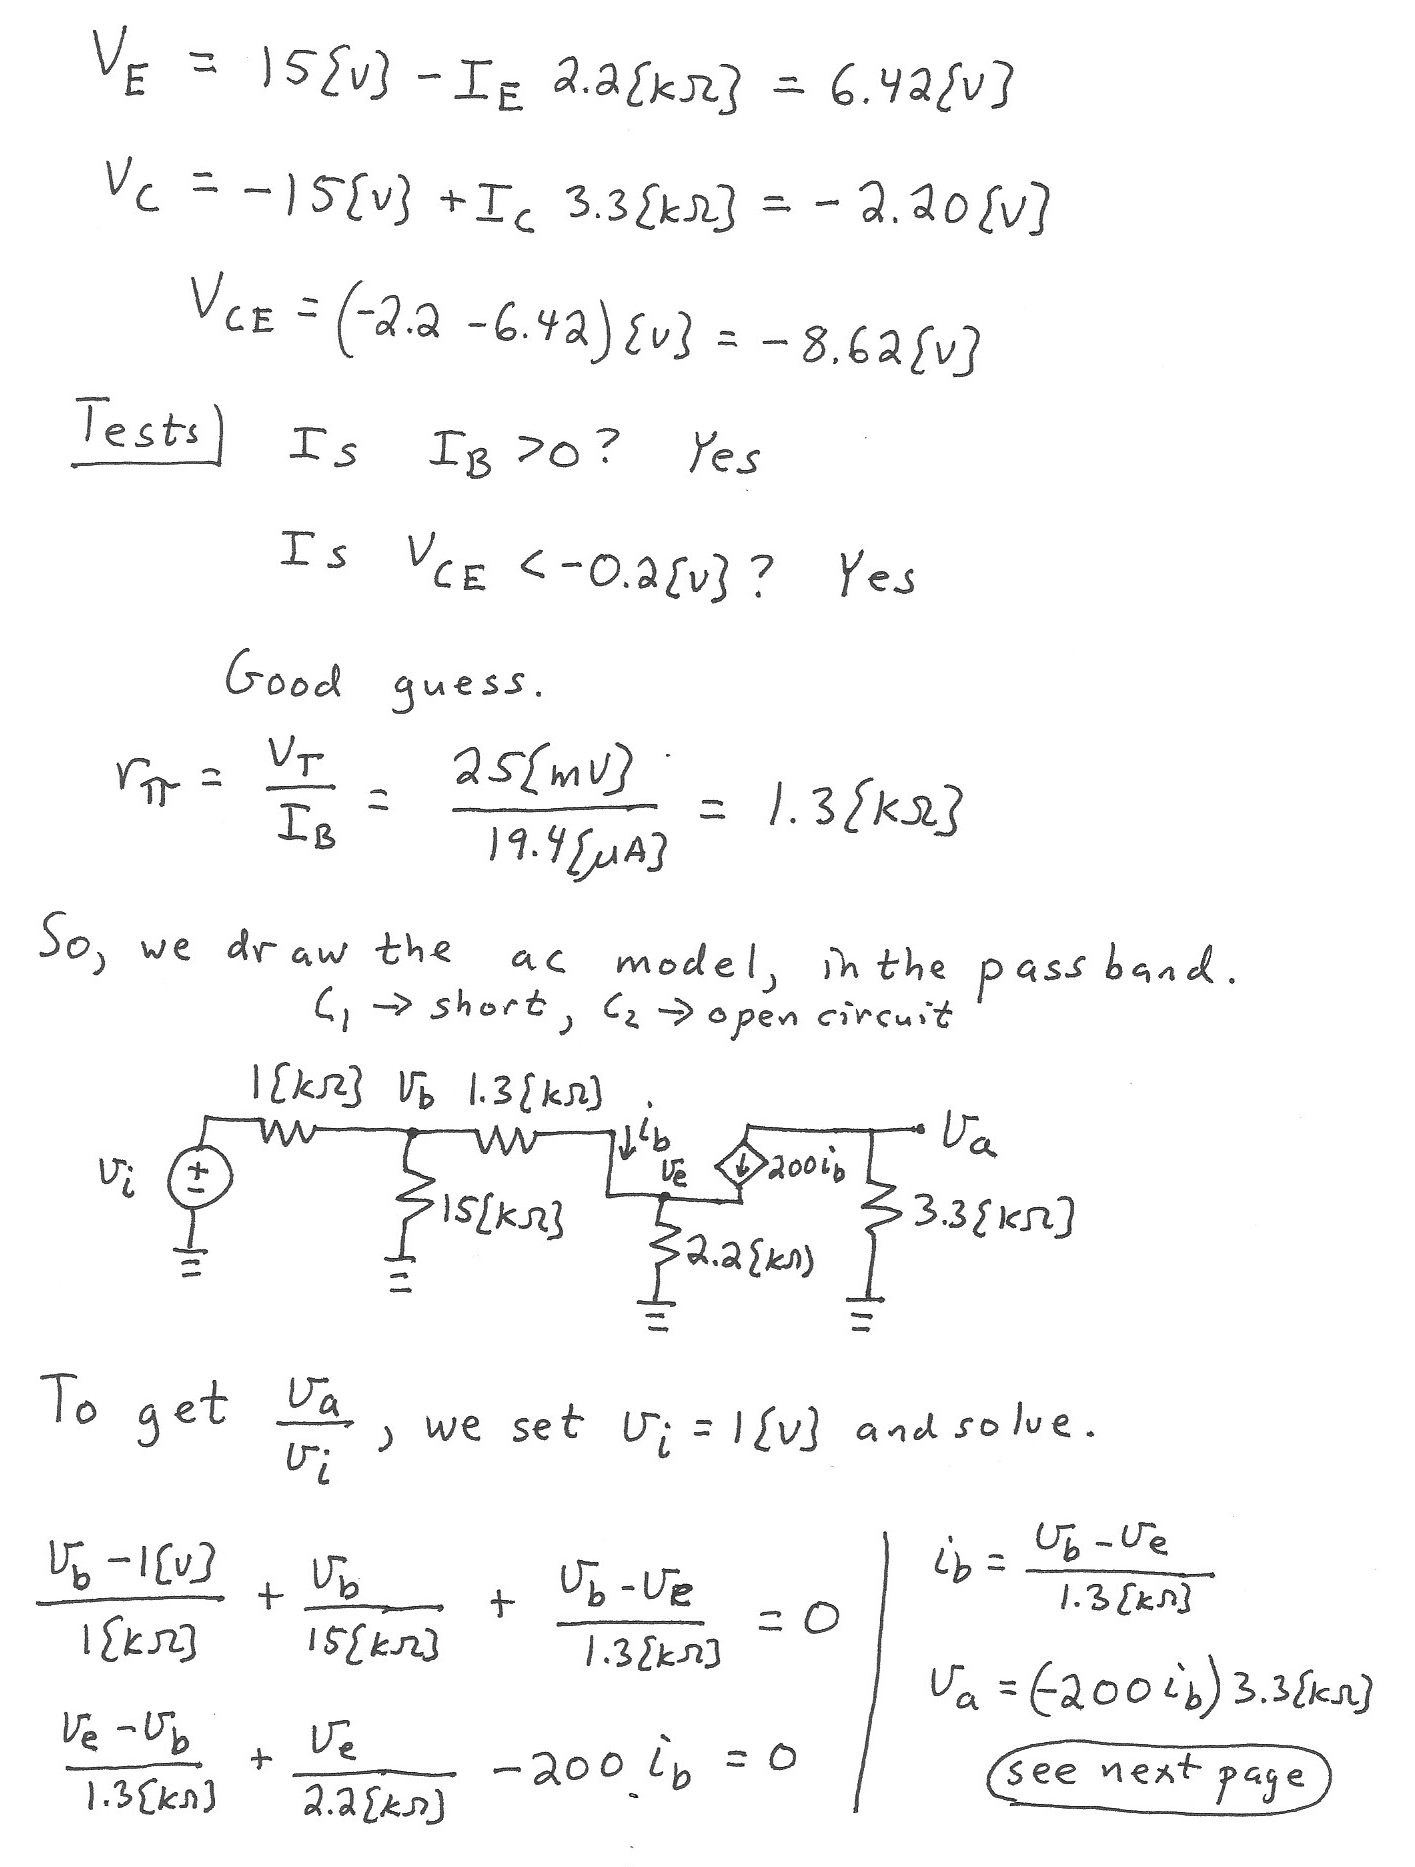 V_E = 15{V} - I_E 2.2{kΩ} = 6.42{V}
V_C = -15{V} + I_C 3.3{kΩ} = -2.20{V}
V_CE = (-2.2 - 6.42){V} = -8.62{V}
Tests) Is I_B > 0? Yes
Is V_CE < -0.2{V}? Yes
Good guess.
r_π = V_T / I_B = 25{mV} / 19.4{μA} = 1.3{kΩ}
So, we draw the ac model, in the passband.
C_1 → short, C_2 → open circuit
1{kΩ} v_b 1.3{kΩ} i_b v_a
v_i + - v_e 200i_b
15{kΩ} 3.3{kΩ}
2.2{kΩ}
To get v_a / v_i, we set v_i = 1{V} and solve.
(v_b - 1{V}) / 1{kΩ} + v_b / 15{kΩ} + (v_b - v_e) / 1.3{kΩ} = 0
(v_e - v_b) / 1.3{kΩ} + v_e / 2.2{kΩ} - 200 i_b = 0
i_b = (v_b - v_e) / 1.3{kΩ}
v_a = (-200 i_b) 3.3{kΩ}
see next page